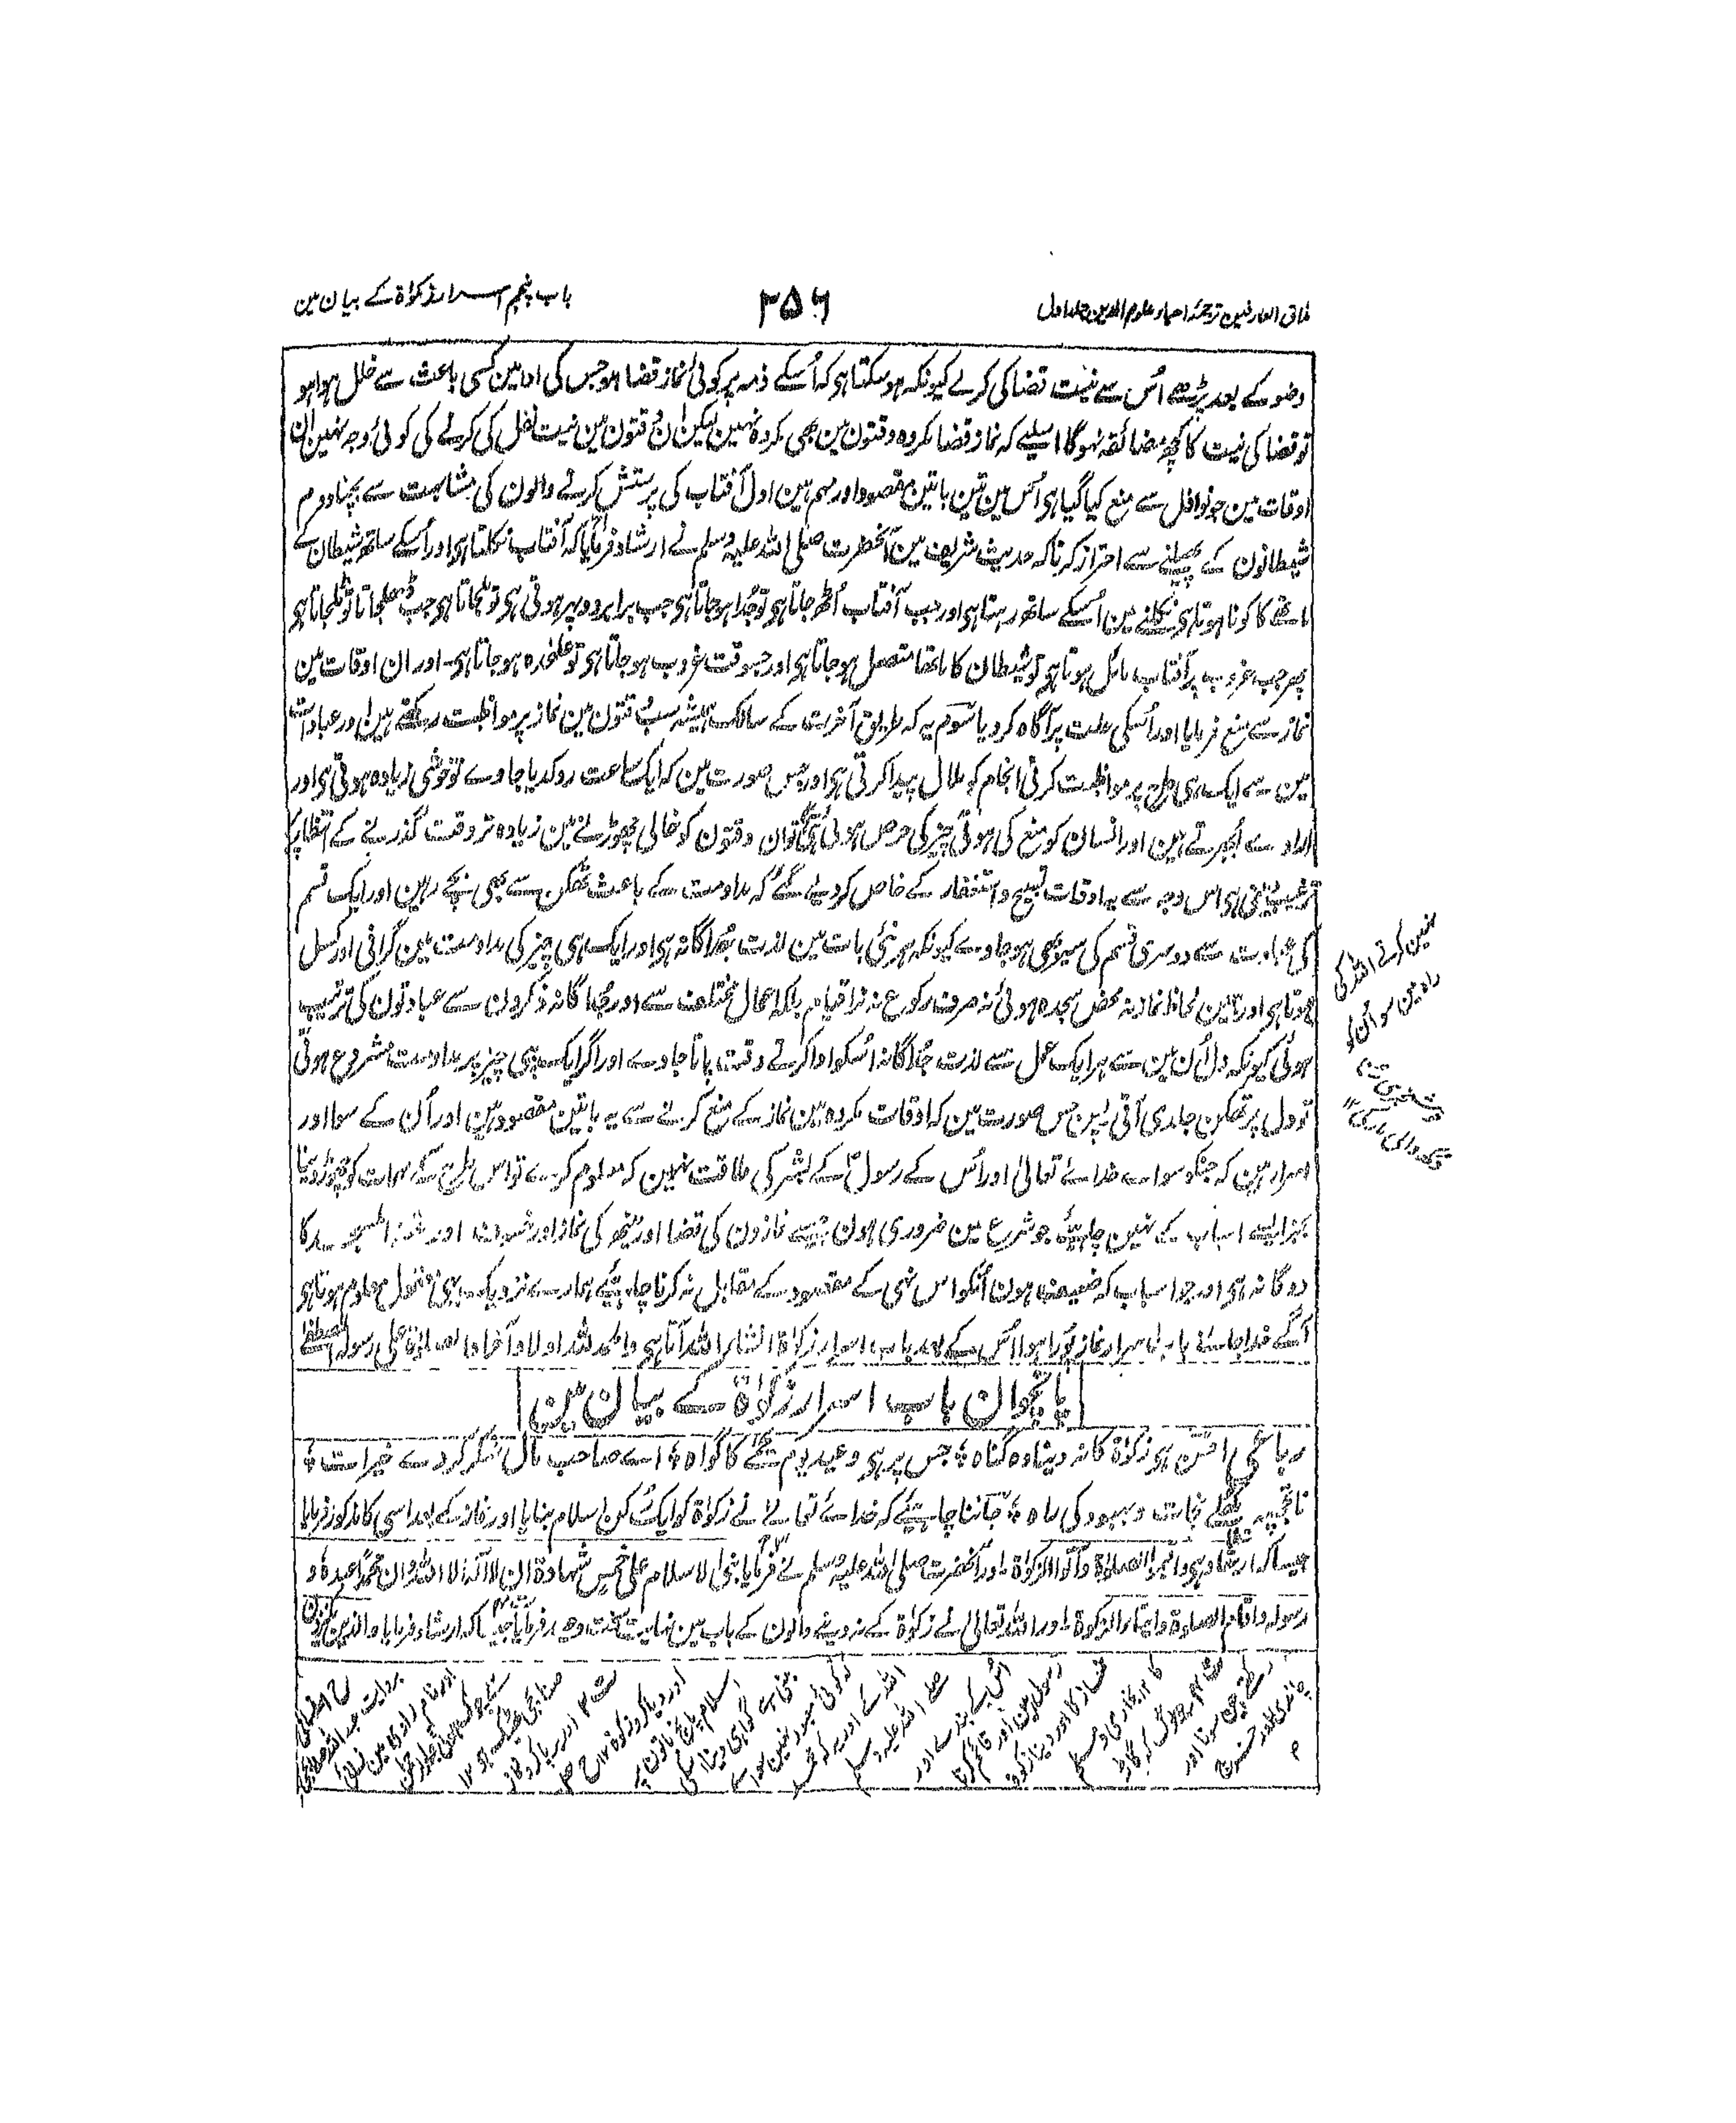 مذاق العارفین ترجمۂ احیاء علوم الدین جلد اول
۲۵۶
باب پنجم اسرار زکوٰۃ کے بیان مین
وضو کے بعد پڑھے اُس سے نیت قضا کی کرلے کیونکہ ہو سکتا ہی کہ اُسکے ذمہ پر کوئی نماز قضا ہو جس کی ادا مین کسی باعث سے خلل ہوا ہو
تو قضا کی نیت کا کچھ مضائقہ نہوگا اسلیے کہ نماز قضا مکروہ وقتون مین بھی مکروہ نہین لیکن اُن وقتون مین نیت نفل کی کرنے کی کوئی وجہ نہین ان
اوقات مین جو نوافل سے منع کیا گیا ہی اُس مین تین باتین مقصود اور مہم ہین اول آفتاب کی پرستش کرنے والون کی مشابہت سے بچنا دوم
شیطانون کے پھیلنے سے احتراز کرنا کہ حدیث شریف مین آنحضرت صلی اللہ علیہ وسلم نے ارشاد فرمایا کہ آفتاب نکلتا ہی اور اُسکے ساتھ شیطان کے
ماتھے کا کونا ہوتا ہی نکلنے مین اُسکے ساتھ رہتا ہی اور جب آفتاب اُٹھ جاتا ہی تو جُدا ہو جاتا ہی جب برابر دوپہر ہوتی ہی تو ملجاتا ہی جب ڈھلجاتا تو ٹلجاتا ہی
پھر جب غروب پر آفتاب مائل ہوتا ہی تو شیطان کا ماتھا متصل ہو جاتا ہی اور جسوقت غروب ہو جاتا ہی تو علٰحدہ ہو جاتا ہی۔ اور ان اوقات مین
نماز سے منع فرمایا اور اُسکی علت پر آگاہ کر دیا سوم یہ کہ طریق آخرت کے سالک ہمیشہ سب وقتون مین نماز پر مواظبت رکھتے ہین اور عبادات
مین سے ایک ہی طرح پر مواظبت کرنی انجام کو ملال پیدا کرتی ہی اور جس صورت مین کہ ایک ساعت روکدیا جاوے تو خوشی زیادہ ہوتی ہی اور
ارادے اُبھرتے ہین اور انسان کو منع کی ہوئی چیز کی حرص ہوتی ہی تو ان وقتون کو خالی چھوڑنے مین زیادہ تر وقت گذرنے کے انتظار پر
ترغیب پائی جاتی ہی اس وجہ سے یہ اوقات تسبیح و استغفار کے خاص کر دیے گئے کہ مداومت کے باعث تھکن سے بھی بچے رہین اور ایک قسم
کی عبادت سے دوسری قسم کی سیر بھی ہو جاوے کیونکہ ہر نئی بات مین لذت جُداگانہ ہی اور ایک ہی چیز کی مداومت مین گرانی اور کسل
ہوتا ہی اور اسی لحاظ نماز نہ محض سجدہ ہوئی نہ صرف رکوع نہ نرا قیام بلکہ اعمال مختلف سے اور جُداگانہ ذکرون سے عبادتون کی ترتیب
ہوئی کیونکہ دل اُن مین سے ہر ایک عمل سے لذت جُداگانہ اُسکو ادا کرتے وقت پاتا جاوے اور اگر ایک ہی چیز پر مداومت مشروع ہوتی
تو دل پر تھکن جلدی آتی پس جس صورت مین کہ اوقات مکروہ مین نماز کے منع کرنے سے یہ باتین مقصود ہین اور اُن کے سوا اور
اسرار ہین کہ جنکو سواے خداے تعالیٰ اور اُس کے رسولؐ کے بشر کی طاقت نہین کہ معلوم کرے تو اس طرح کے مہمات کو چھوڑ دینا
بجز ایسے اسباب کے نہین چاہیئے جو شرع مین ضروری ہون جیسے نمازون کی قضا اور مینھ کی نماز اور خسوف اور تحیۃ المسجد کا
دوگانہ ہی اور جو اسباب کہ ضعیف ہون اُنکو اس نہی کے مقصود کے مقابل نہ کرنا چاہیئے ہمارے نزدیک یہی معقول معلوم ہوتا ہی
آگے خدا جانے باب اسرار نماز پورا ہوا اُس کے بعد باب اسرار زکوٰۃ انشاء اللہ آتا ہی والحمد للہ اولا و آخرا والصلوٰۃ علی رسولہ المصطفیٰ
پانچوان باب اسرار زکوٰۃ کے بیان مین
رباعی راحسن ہی زکوٰۃ کا نہ دینا وہ گناہ ؛ جس پر ہی وعید یوم یحمیٰ کا گواہ ؛ اے صاحب مال شکر کر دے خیرات ؛
تا تجھپہ کھلے نجات و بہبود کی راہ ؛ جاننا چاہیئے کہ خداے تعالےٰ نے زکوٰۃ کو ایک رکن اسلام بنایا اور نماز کے بعد اسی کا مذکور فرمایا
جیسا کہ ارشاد ہی واقیموا الصلوٰۃ وآتوا الزکوٰۃ اور آنحضرت صلی اللہ علیہ وسلم نے فرمایا بنی الاسلام علی خمس شہادۃ ان لا الٰہ الا اللہ وان محمدًا عبدہ و
رسولہ واقام الصلوۃ وایتاء الزکوۃ اور اللہ تعالیٰ نے زکوٰۃ کے نہ دینے والون کے باب مین نہایت سخت وعید فرمایا جیسا کہ ارشاد فرمایا والذین یکنزون
نہین کرتے اللہ کی
راہ مین سو اُن کو